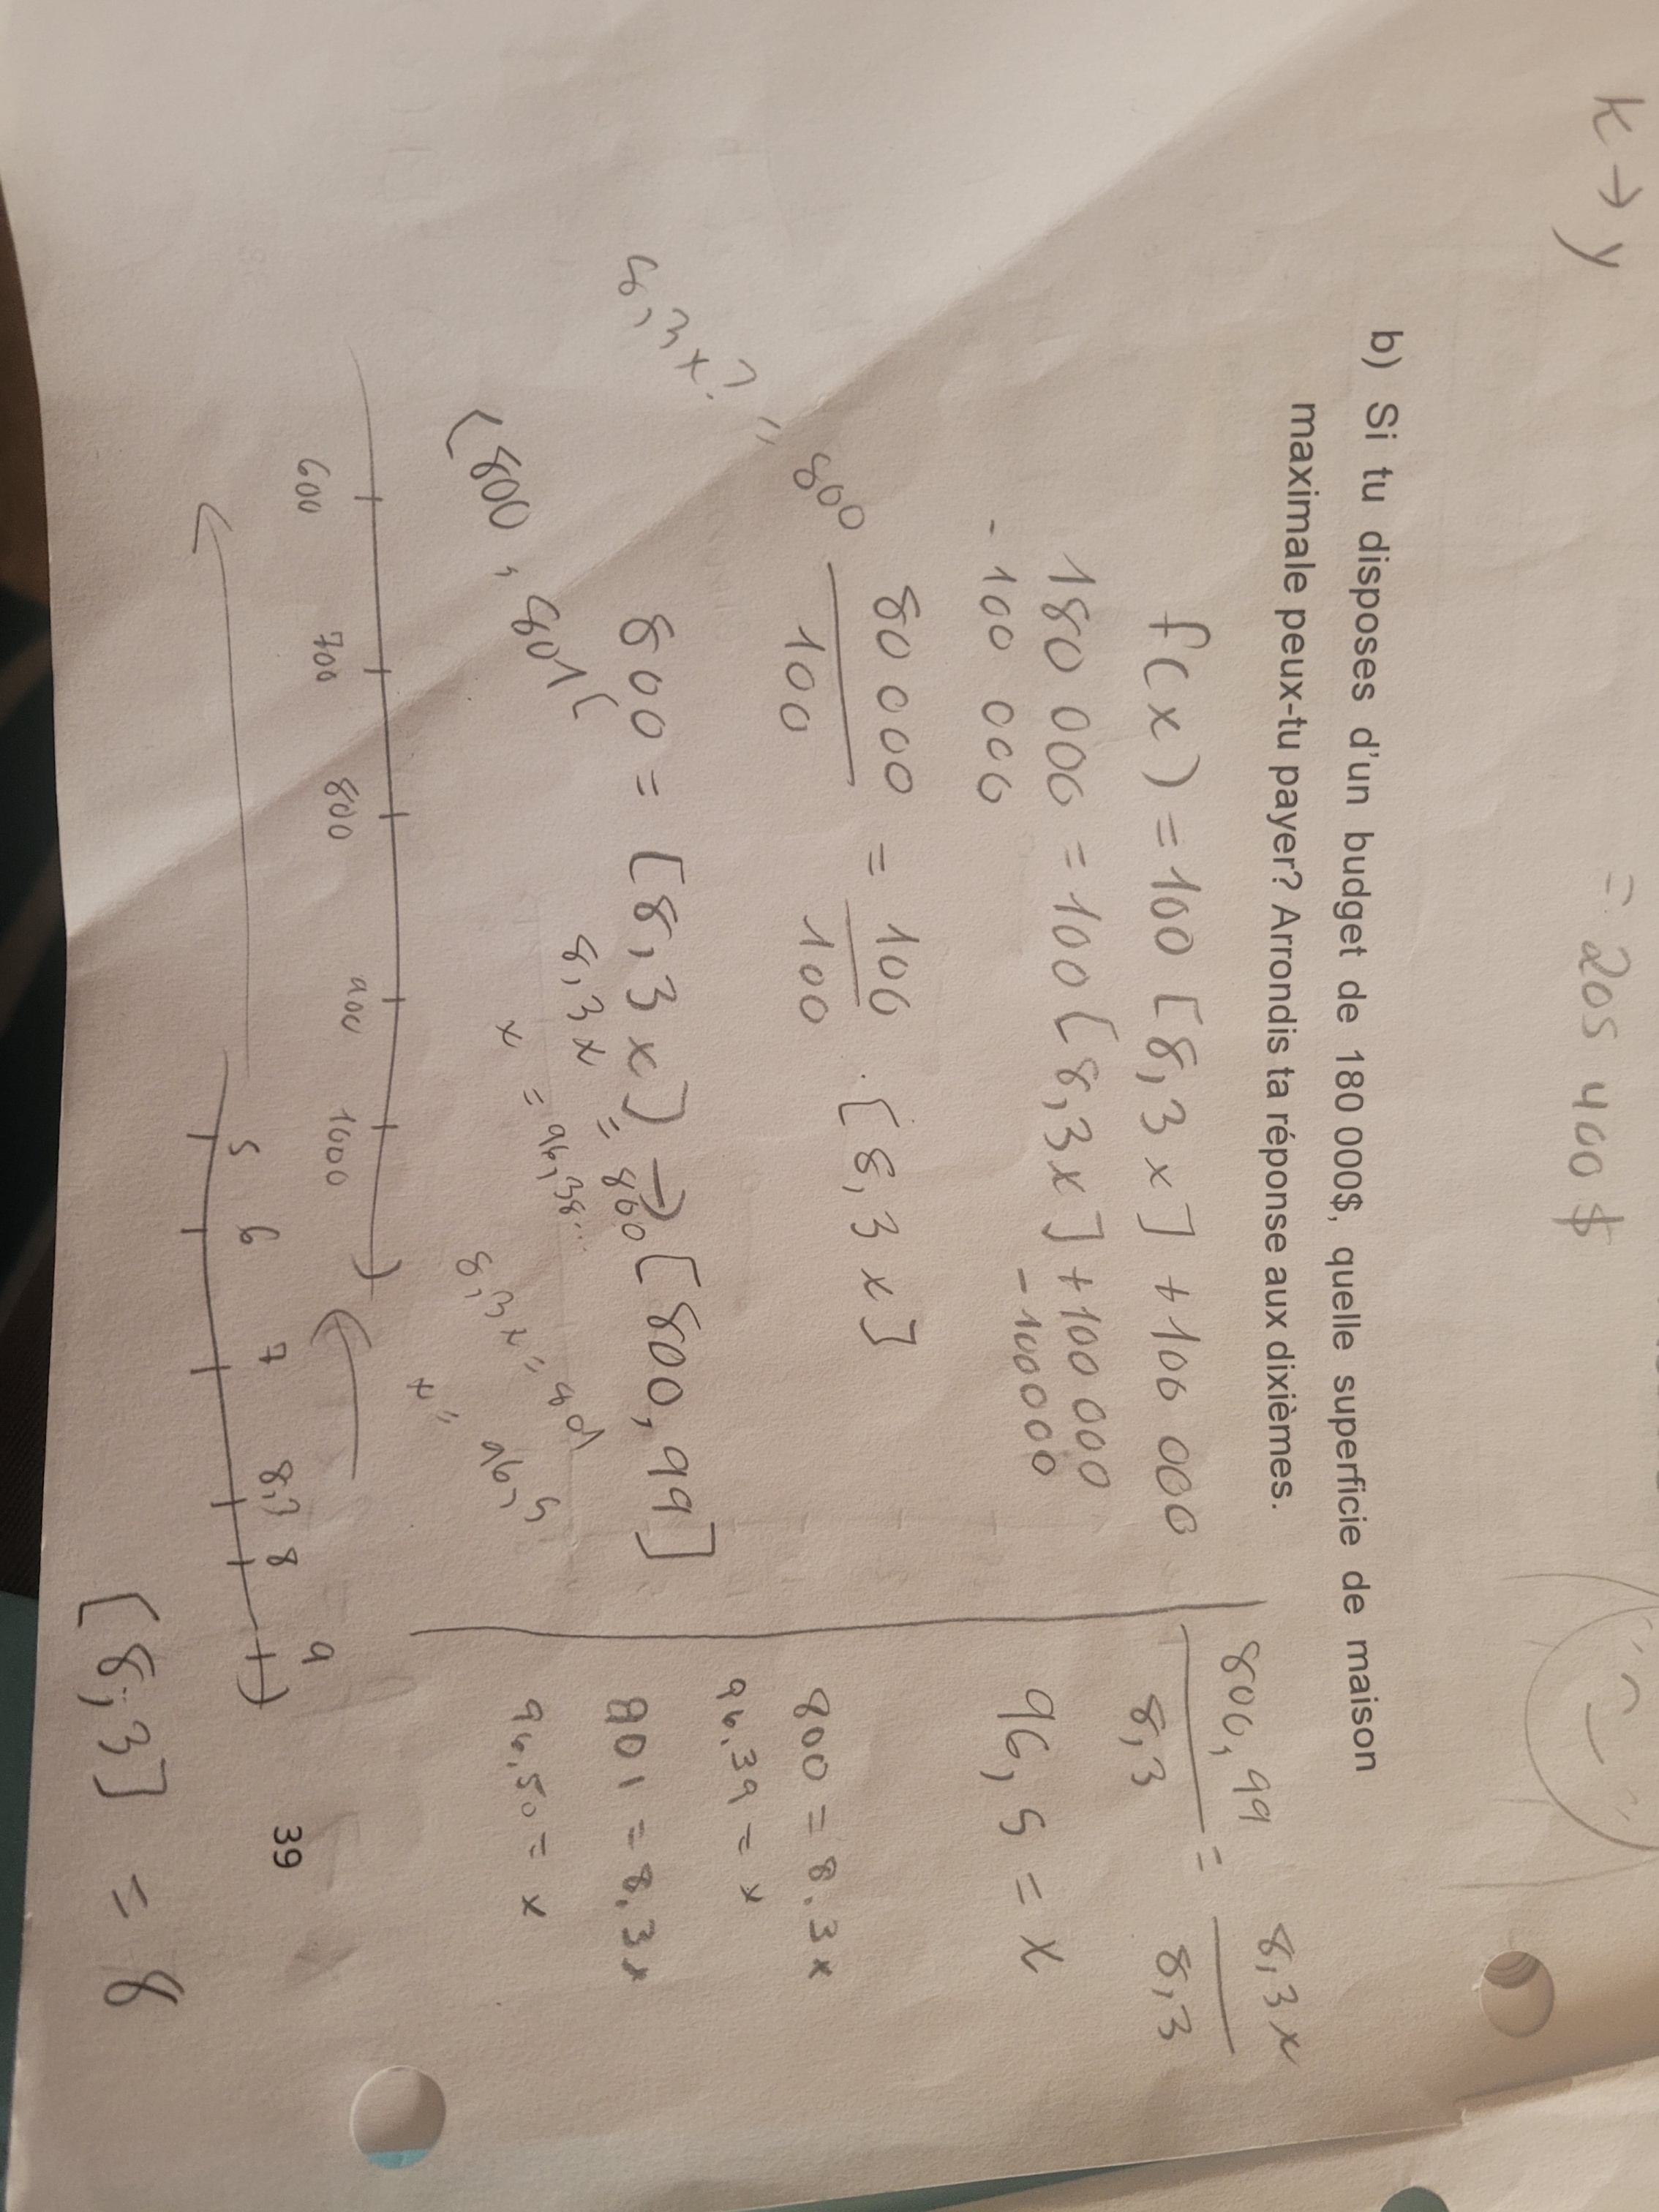 k → y
= 205 400 $
b) Si tu disposes d'un budget de 180 000$, quelle superficie de maison
maximale peux-tu payer? Arrondis ta réponse aux dixièmes.
f(x) = 100 [8,3x] + 100 000
180 000 = 100 [8,3x] + 100 000
- 100 000 - 100000
80 000 = 100 · [8,3x]
100 100
800 = [8,3x] → [800,99]
8,3x = 800
x = 96,38...
8,3x = 801
x = 96,5
8,3x? = 800
[800, 801[
600 700 800 900 1000
5 6 7 8,3 8 9
800,99 = 8,3x
8,3 8,3
96,5 = x
800 = 8.3x
96.39 = x
801 = 8.3x
96.50 = x
[8,3] = 8
39